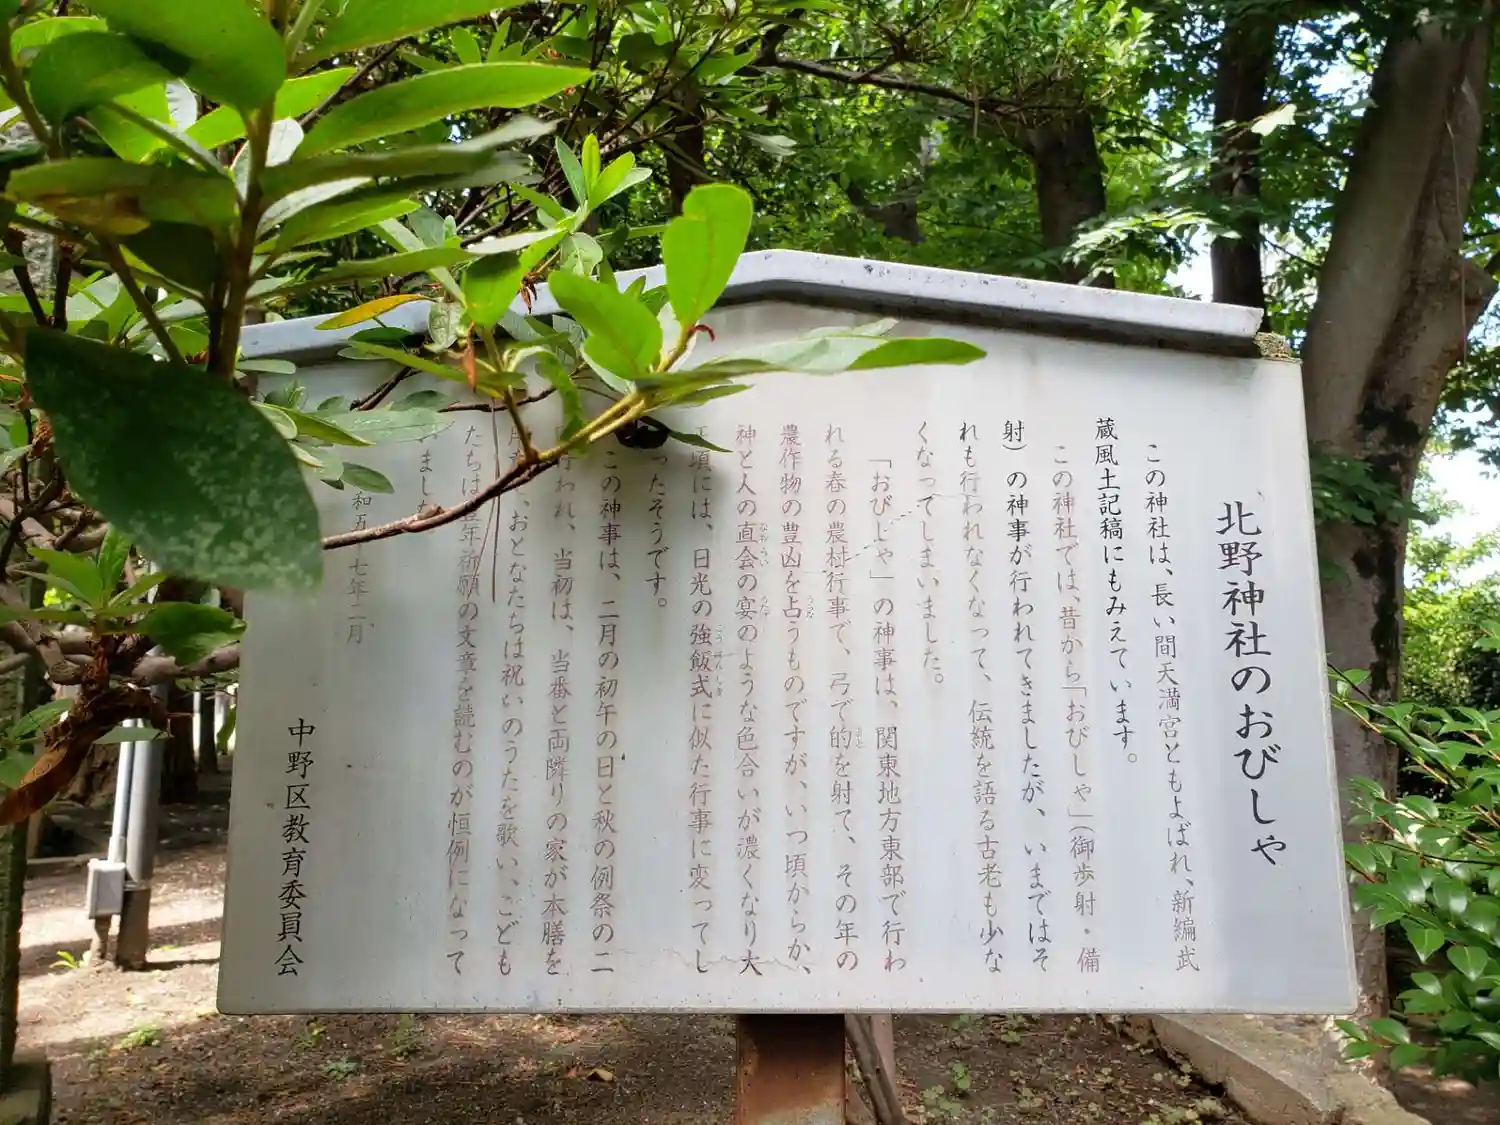 北野神社のおびしゃ
この神社は、長い間天満宮ともよばれ、新編武
蔵風土記稿にもみえています。
この神社では、昔から「おびしゃ」（御歩射・備
射）の神事が行われてきましたが、いまではそ
れも行われなくなって、伝統を語る古老も少な
くなってしまいました。
「おびしゃ」の神事は、関東地方東部で行わ
れる春の農村行事で、弓で的を射て、その年の
農作物の豊凶を占うものですが、いつ頃からか、
神と人の直会の宴のような色合いが濃くなり大
頃には、日光の強飯式に似た行事に変ってし
ったそうです。
この神事は、二月の初午の日と秋の例祭の二
行われ、当初は、当番と両隣りの家が本膳を
、おとなたちは祝いのうたを歌い、こども
たちは年祈願の文章を読むのが恒例になって
いました
和五十七年二月
中野区教育委員会